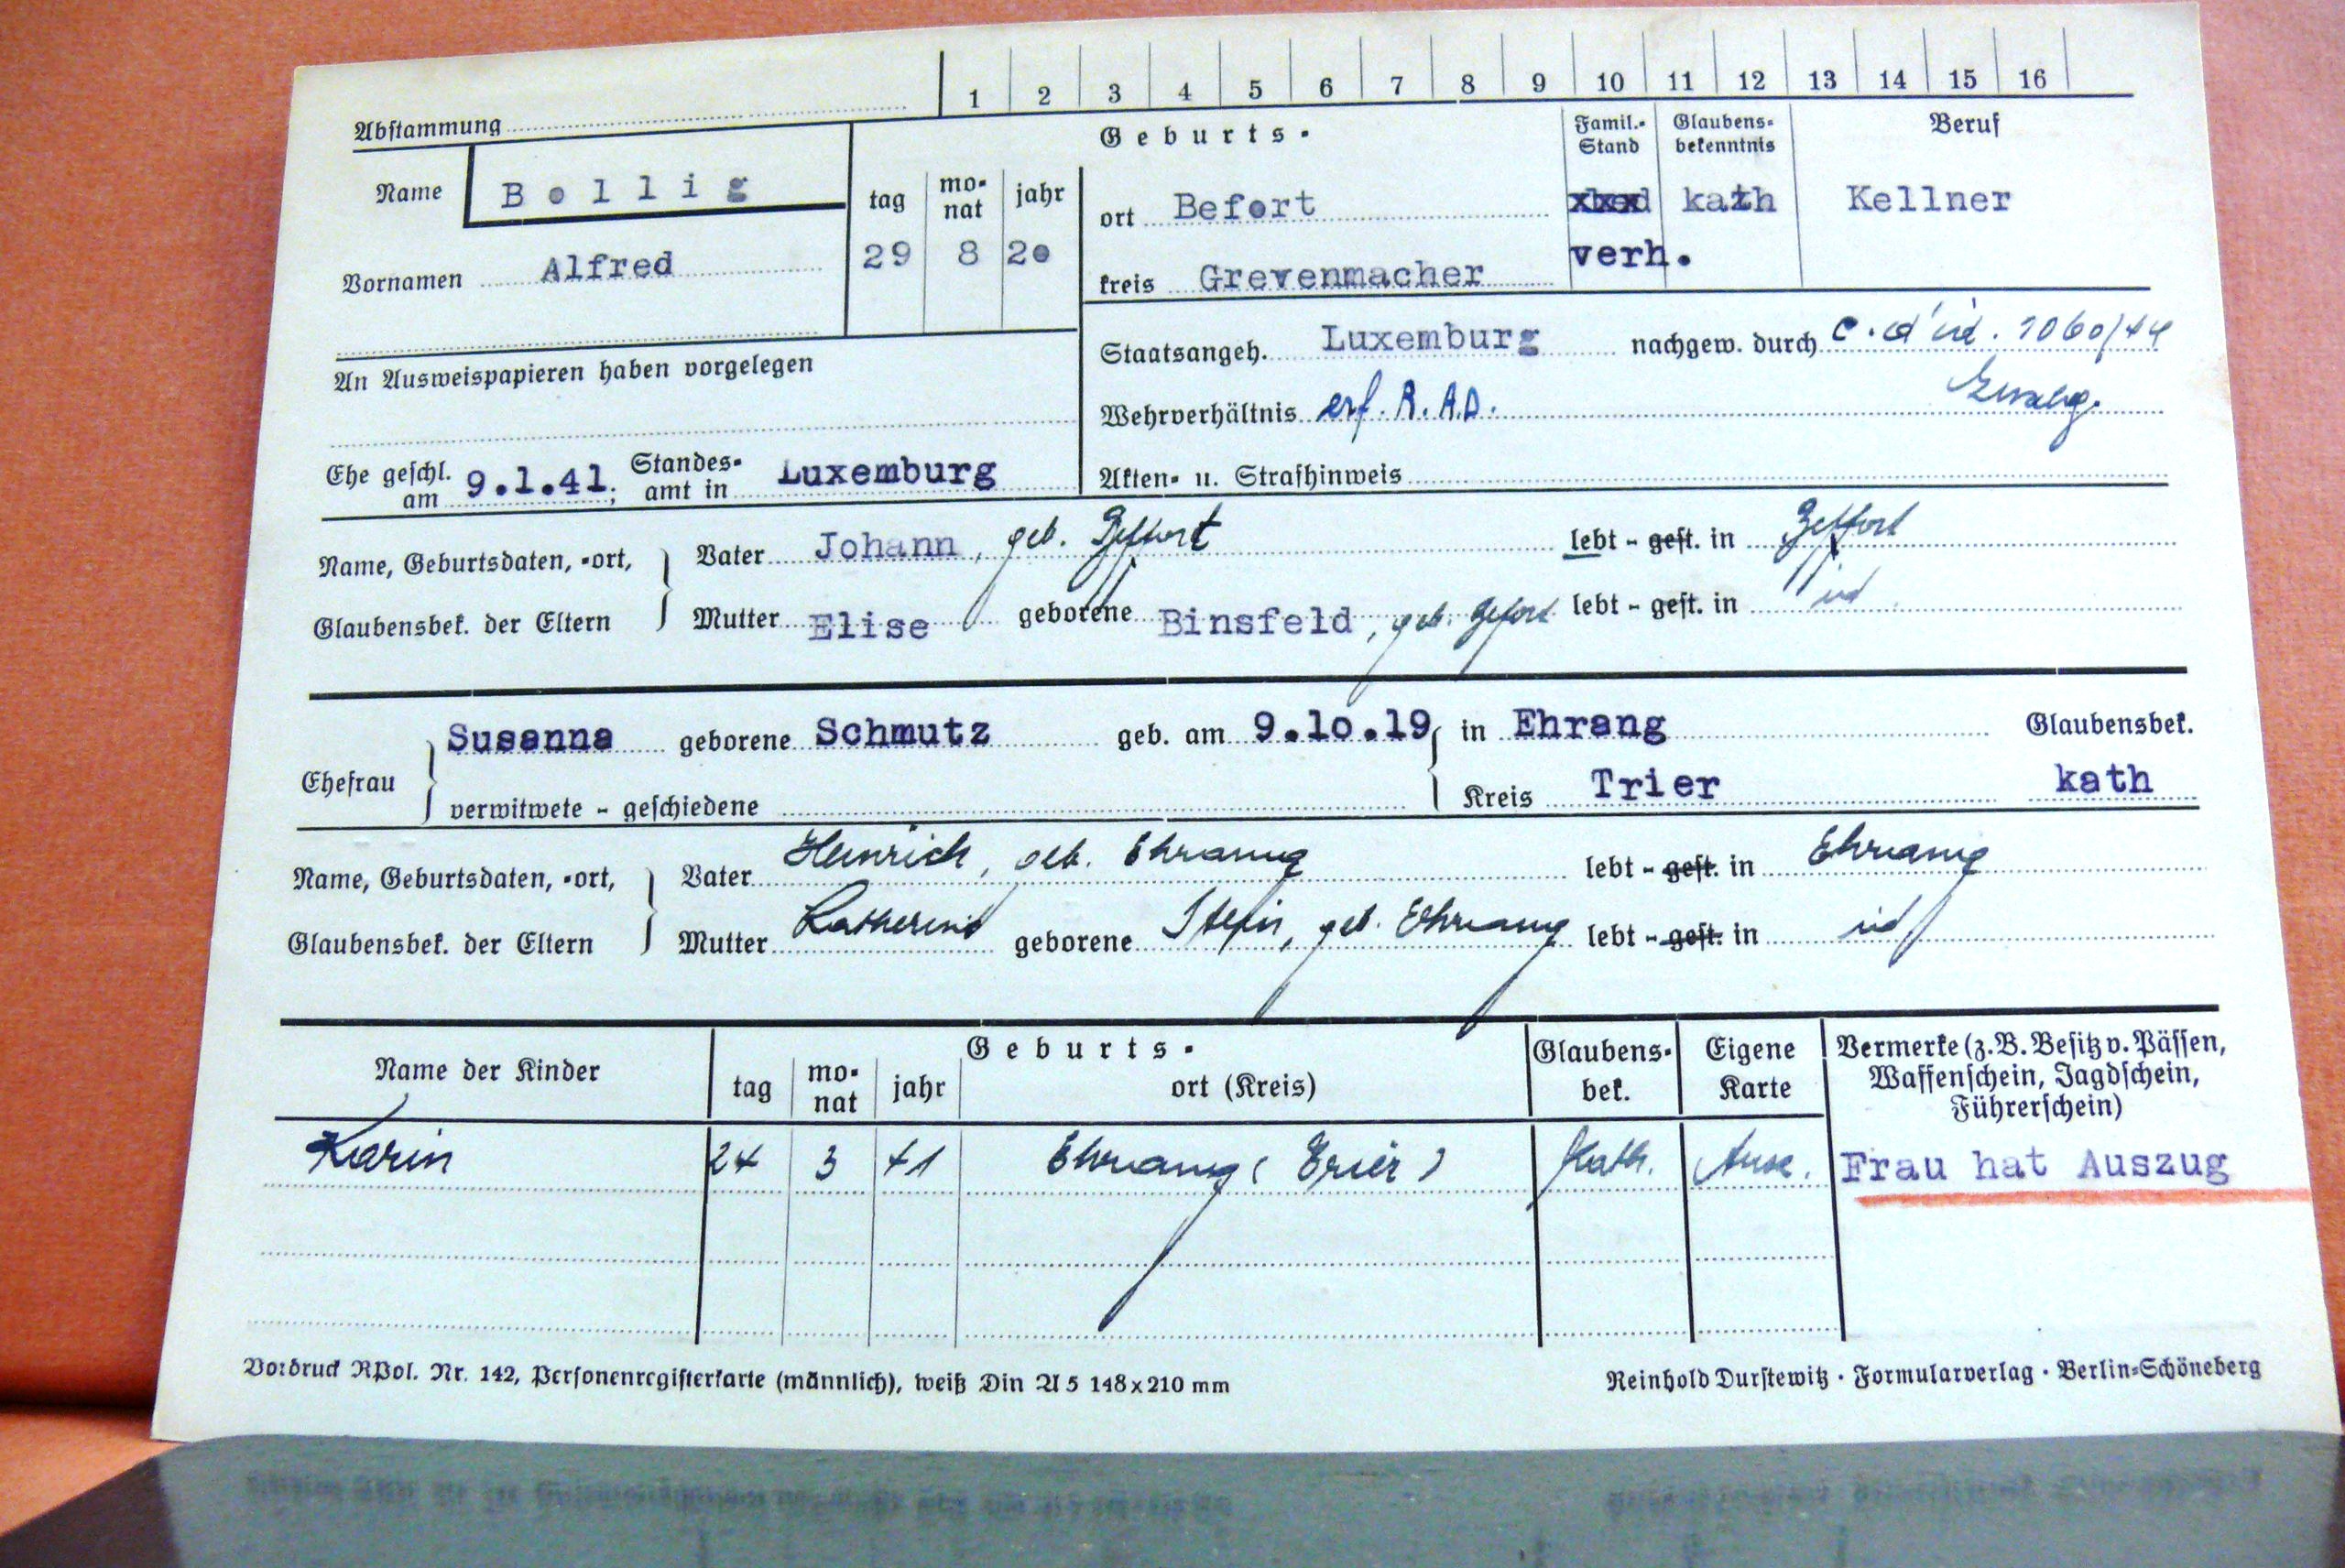 Abstammung 1 2 3 4 5 6 7 8 9 10 11 12 13 14 15 16
Name Bollig
Vornamen Alfred
Geburts-
tag monat jahr
29 8 20
ort Befort
kreis Grevenmacher
Famil.-Stand
verh.
Glaubensbekenntnis
kath
Beruf
Kellner
An Ausweispapieren haben vorgelegen
Staatsangeh. Luxemburg nachgew. durch C. d'id. 1060/44
Wehrverhältnis erf. R.A.D.
Akten- u. Strafhinweis
Ehe geschl. am 9.1.41; Standesamt in Luxemburg
Name, Geburtsdaten, -ort, Vater Johann, geb. Beffort lebt - gest. in Beffort
Glaubensbek. der Eltern Mutter Elise geborene Binsfeld, geb. Befort lebt - gest. in id
Ehefrau Susanna geborene Schmutz geb. am 9.10.19 in Ehrang Glaubensbek.
verwitwete - geschiedene Kreis Trier kath
Name, Geburtsdaten, -ort, Vater Heinrich, geb. Ehrang lebt - gest. in Ehrang
Glaubensbek. der Eltern Mutter Katherina geborene Stein, geb. Ehrang lebt - gest. in id
Name der Kinder Geburts- tag monat jahr ort (Kreis) Glaubensbek. Eigene Karte
Vermerke (z. B. Besitz v. Pässen,
Waffenschein, Jagdschein,
Führerschein)
Karin 24 3 41 Ehrang (Trier) Kath.
Frau hat Auszug
Vordruck RPol. Nr. 142, Personenregisterkarte (männlich), weiß Din A 5 148x210 mm
Reinhold Durstewitz · Formularverlag · Berlin-Schöneberg